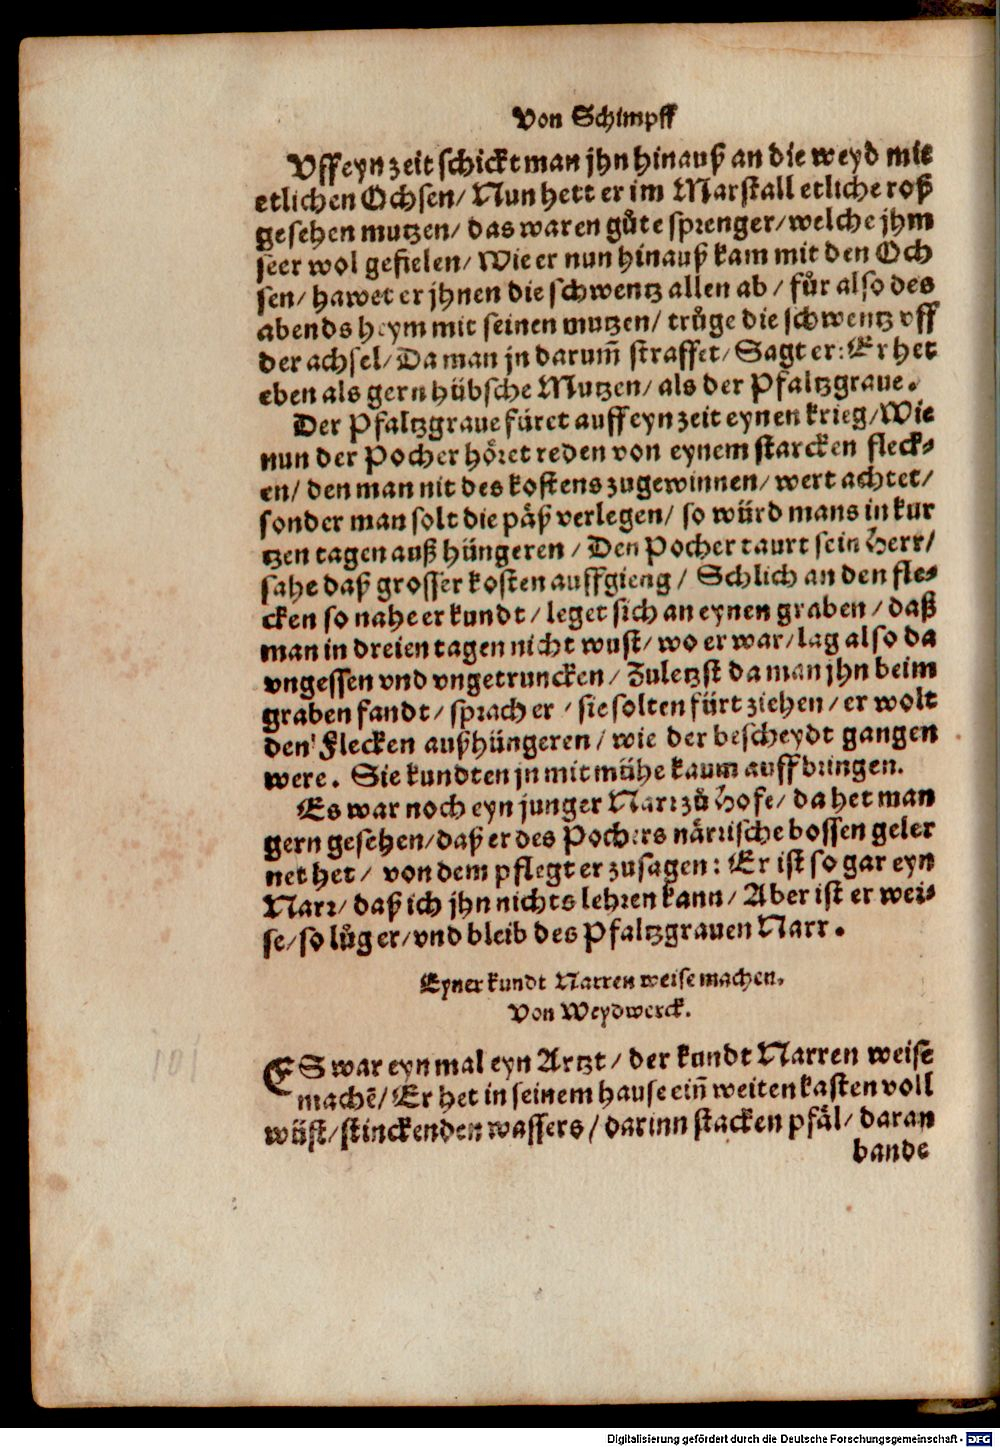 Von Schimpff
Vff eyn zeit schickt man jhn hinauß an die weyd mit
etlichen Ochsen/ Nun hett er im Marstall etliche roß
gesehen mutzen/ das waren gůte sprenger/ welche jhm
seer wol gefielen/ Wie er nun hinauß kam mit den Och
sen/ hawet er jhnen die schwentz allen ab/ fůr also des
abends heym mit seinen mutzen/ trůge die schwentz vff
der achsel/ Da man jn darum̃ straffet/ Sagt er: Er het
eben als gern hübsche Mutzen/ als der Pfaltzgraue.
Der Pfaltzgraue füret auff eyn zeit eynen krieg/ Wie
nun der Pocher höret reden von eynem starcken fleck-
en/ den man nit des kostens zugewinnen/ wert achtet/
sonder man solt die päß verlegen/ so würd mans in kur
tzen tagen auß hüngeren/ Den Pocher taurt sein Herr/
sahe daß grosser kosten auffgieng/ Schlich an den fle-
cken so nahe er kundt/ leget sich an eynen graben/ daß
man in dreien tagen nicht wust/ wo er war/ lag also da
vngessen vnd vngetruncken/ Zuletzst da man jhn beim
graben fandt/ sprach er/ sie solten fürt ziehen/ er wolt
den Flecken außhüngeren/ wie der bescheydt gangen
were. Sie kundten jn mit mühe kaum auffbringen.
Es war noch eyn junger Narr zů Hofe/ da het man
gern gesehen/ daß er des Pochers närrische bossen geler
net het/ von dem pflegt er zusagen: Er ist so gar eyn
Narr/ daß ich jhn nichts lehren kann/ Aber ist er wei-
se/ so lůg er/ vnd bleib des Pfaltzgrauen Narr.
Eyner kundt Narren weise machen.
Von Weydwerck.
ES war eyn mal eyn Artzt/ der kundt Narren weise
machē/ Er het in seinem hause ein̄ weiten kasten voll
wüst/ stinckenden wassers/ darinn stacken pfäl/ daran
bande
101
Digitalisierung gefördert durch die Deutsche Forschungsgemeinschaft - DFG